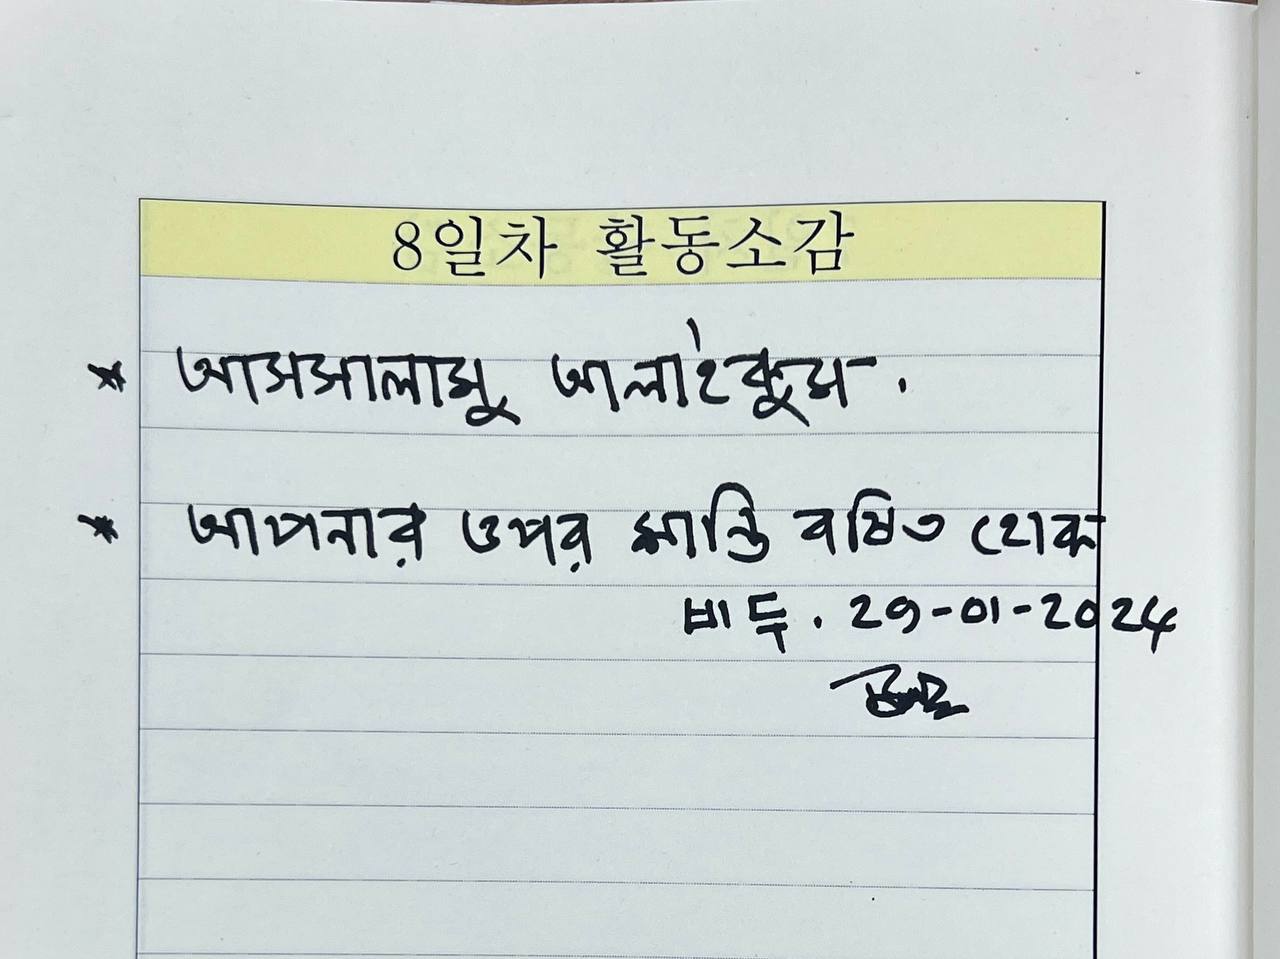 8일차 활동소감
* আসসালামু আলাইকুম.
* আপনার ওপর শান্তি বর্ষিত হোক
비두. 29-01-2024